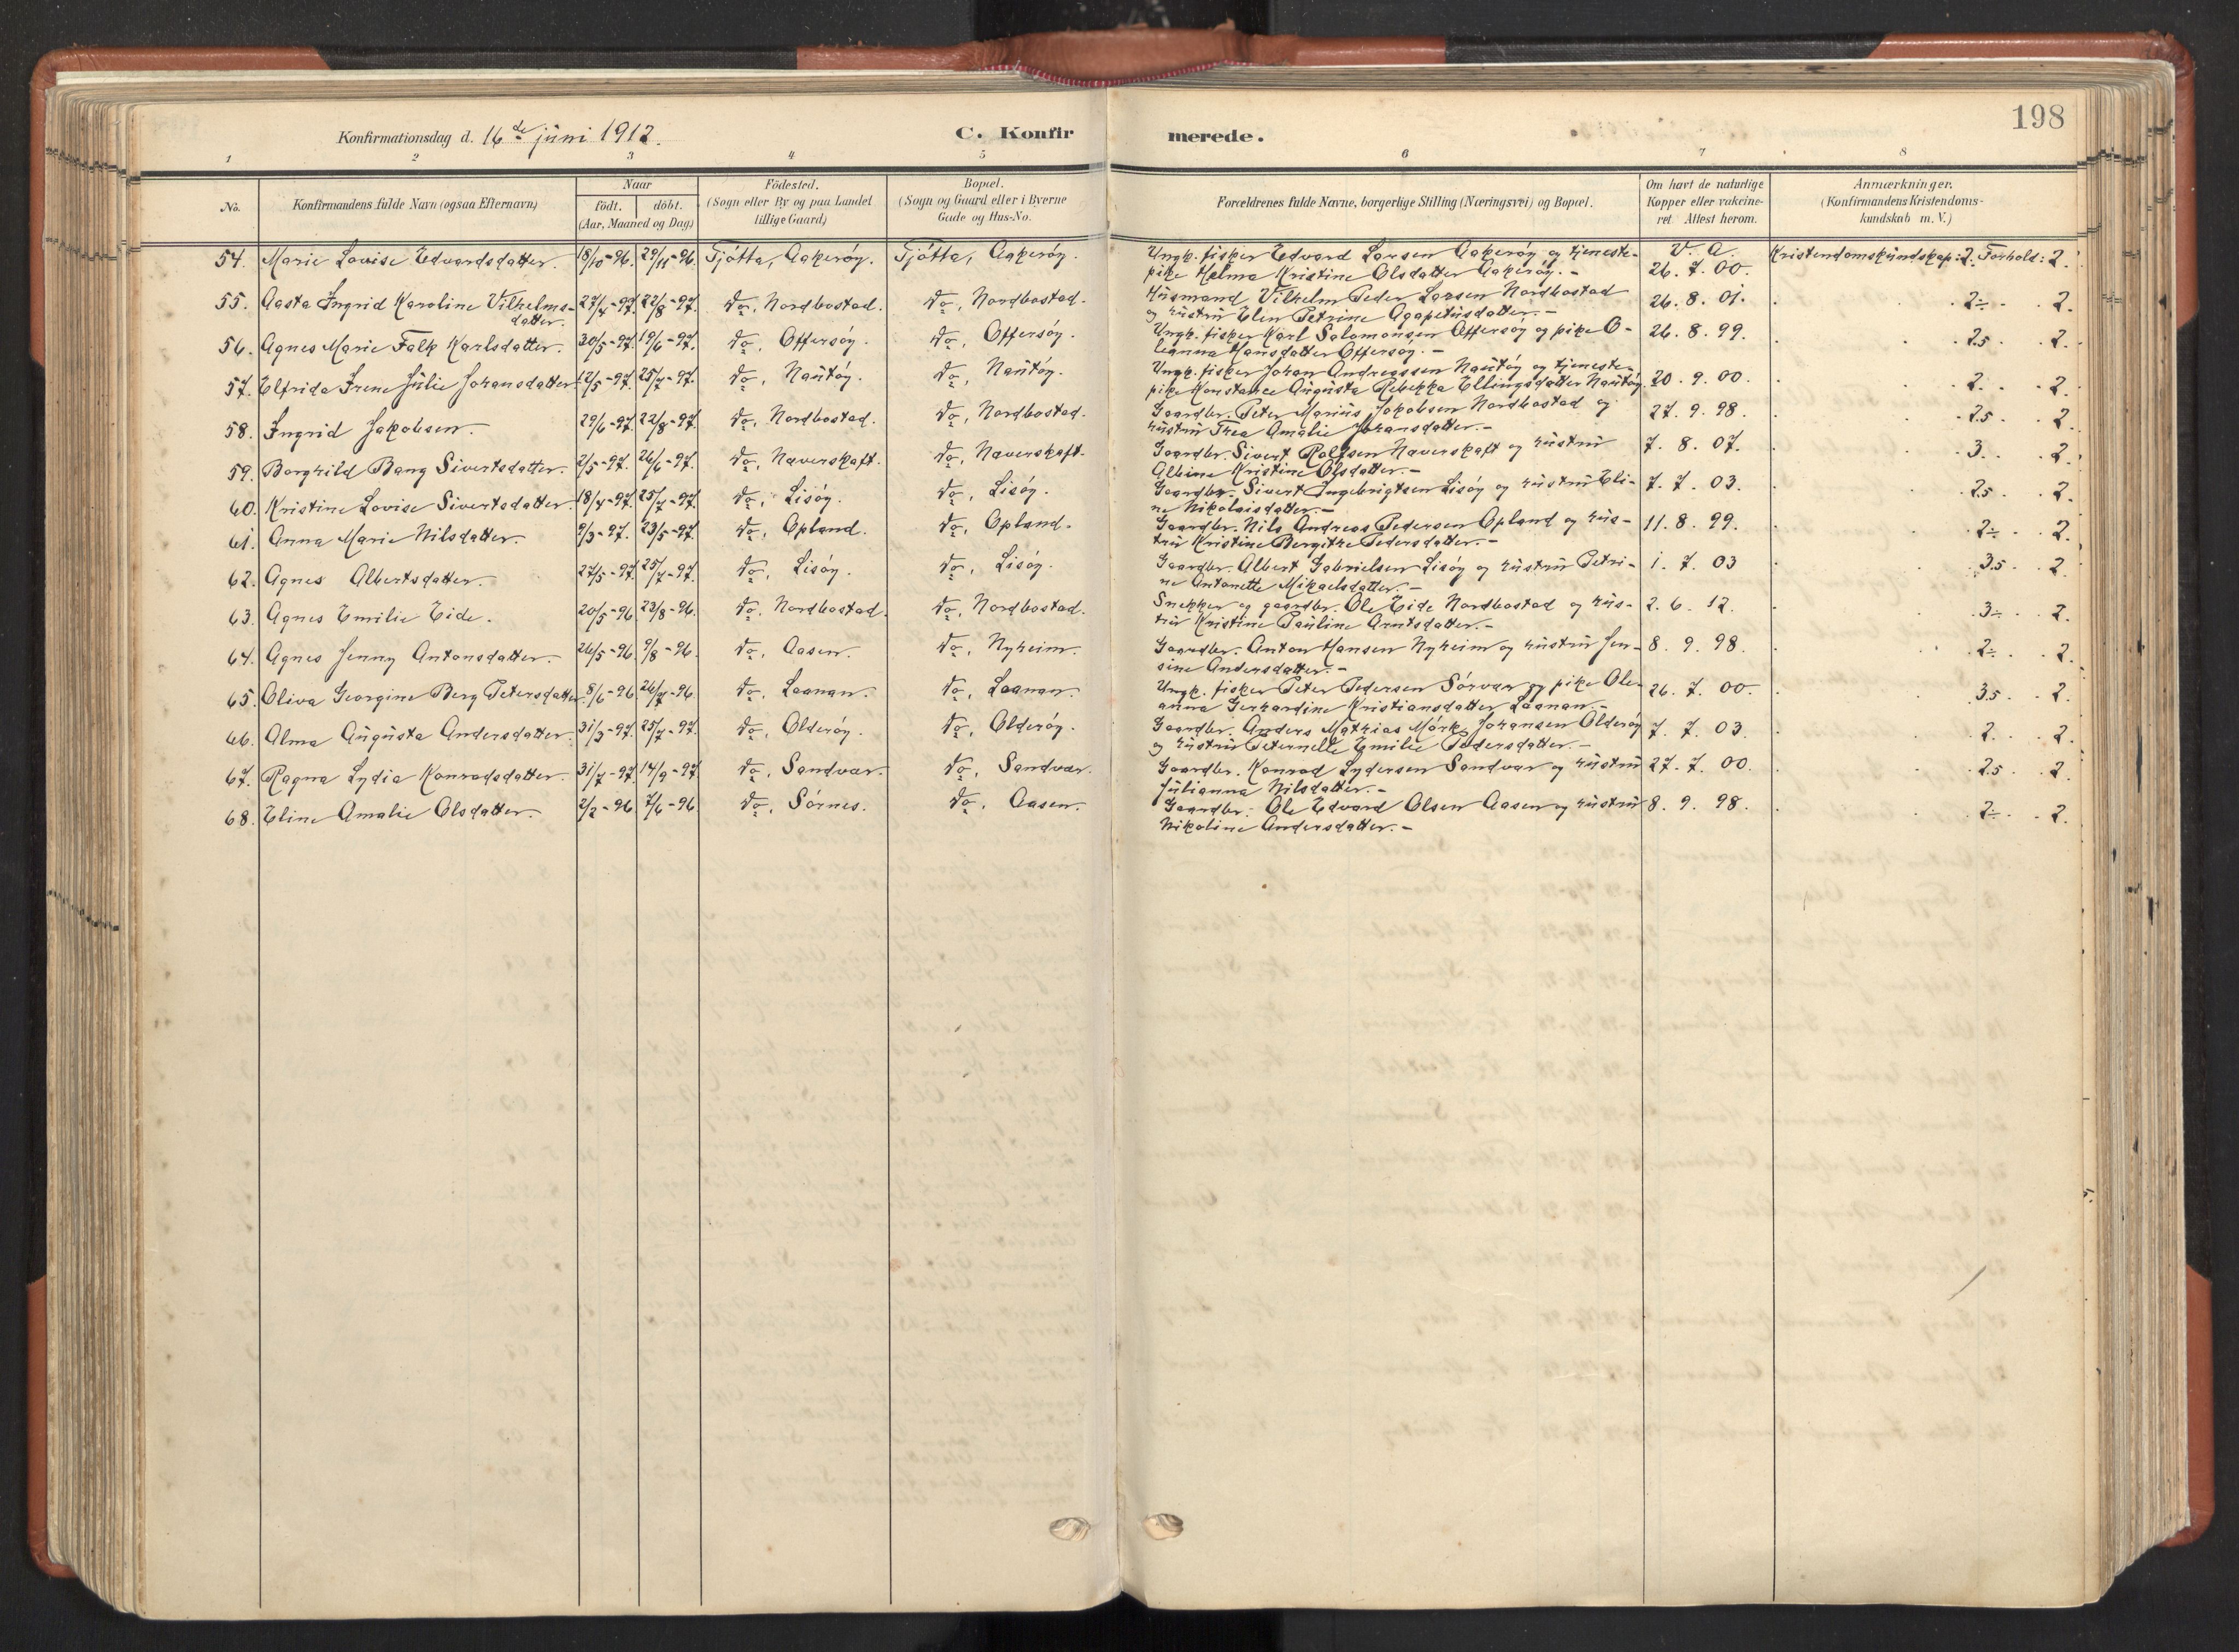 198
Konfirmationsdag d. 16de juni 1912. C. Konfirmerede.
1 2 3 4 5 6 7 8
No. Konfirmandens fulde Navn (ogsaa Efternavn) Naar födt. döbt. (Aar, Maaned og Dag) Födested. (Sogn eller By og paa Landet tillige Gaard) Bopæl. (Sogn og Gaard eller i Byerne Gade og Hus-No. Forældrenes fulde Navne, borgerlige Stilling (Næringsvei) og Bopæl. Om havt de naturlige Kopper eller vakcineret. Attest herom. Anmærkninger. (Konfirmandens Kristendomskundskab m. V.)
54. Marie Lovise Edvardsdatter. 18/10-96. 29/11-96. Tjøtta, Aakerøy. Tjøtta, Aakerøy. Ungk. fisker Edvard Larsen Aakerøy og tjeneste- V. A. Kristendomskundskap: 2. Forhold: 2.
pike Helma Kristine Olsdatter Aakerøy.- 26. 7. 00.
55. Aasta Ingrid Karoline Vilhelms- 27/4-97. 22/8-97. do, Nordbostad. do, Nordbostad. Husmand Vilhelm Peder Larsen Nordbostad 26. 8. 01. 2÷ 2.
datter. og hustru Elen Petrine Agapetusdatter.-
56. Agnes Marie Falk Karlsdatter. 20/5-97. 19/6-97. do, Offersøy. do, Offersøy. Ungk. fisker Karl Salomonsen Offersøy og pike O- 26. 8. 99. 2.5 2.
leanna Hansdatter Offersøy.-
57. Elfrida Irene Julie Johansdatter 12/5-97. 25/7-97. do, Nautøy. do, Nautøy. Ungk. fisker Johan Andreassen Nautøy og tjeneste-
pike Konstance Augusta Rebekka Ellingsdatter Nautøy. 20. 9. 00. 2. 2.
58. Ingrid Jakobsen. 29/6-97. 22/8-97. do, Nordbostad. do, Nordbostad. Gaardbr. Peter Marius Jakobsen Nordbostad og 27. 9. 98. 2.5 2.
hustru Thea Amalie Johansdatter.-
59. Borghild Bang Sivertsdatter. 2/5-97. 26/6-97. do, Haverskaft. do, Haverskaft. Gaardbr. Sivert Rolfsen Haverskaft og hustru 7. 8. 07. 3. 2.
Albine Kristine Olsdatter.-
60. Kristine Lovise Sivertsdatter 18/4-97. 25/7-97. do, Lisøy. do, Lisøy. Gaardbr. Sivert Ingebrigtsen Lisøy og hustru Eli- 7. 7. 03. 2.5 2.
ne Nikolaisdatter.-
61. Anna Marie Nilsdatter. 9/3-97. 23/5-97. do, Opland. do, Opland. Gaardbr. Nils Andreas Pedersen Opland og hus- 11. 8. 99. 2÷ 2.
tru Kristine Bergithe Pedersdatter.-
62. Agnes Albertsdatter. 27/5-97. 25/7-97. do, Lisøy. do, Lisøy. Gaardbr. Albert Gabrielsen Lisøy og hustru Petri- 1. 7. 03 3.5 2.
ne Antonette Mikaelsdatter.-
63. Agnes Emilie Eide. 20/5-96. 23/8-96. do, Nordbostad. do, Nordbostad. Snekker og gaardbr. Ole Eide Nordbostad og hus- 2. 6. 12. 3÷ 2.
tru Kristine Pauline Arntsdatter.-
64. Agnes Jenny Antonsdatter. 26/5-96. 9/8-96. do, Aasen. do, Nyheim. Gaardbr. Anton Hansen Nyheim og hustru Jen- 8. 9. 98. 2÷ 2.
sine Andersdatter.-
65. Oliva Georgine Berg Petersdatter 8/6-96 26/7-96 do, Laanan. do, Laanan. Ungk. fisker Peter Pedersen Sørvær og pike Ole- 26. 7. 00. 3.5 2.
anna Gerhardine Kristiansdatter Laanan.-
66. Alma Augusta Andersdatter. 31/3-97. 25/7-97. do, Olderøy. do, Olderøy. Gaardbr. Anders Mathias Mørk Johansen Olderøy 7. 7. 03. 2. 2.
og hustru Peternelle Emilie Pedersdatter.-
67. Ragna Lydia Konradsdatter. 31/7-97. 14/9-97. do, Sandvær. do, Sandvær. Gaardbr. Konrad Lydersen Sandvær og hustru 27. 7. 00. 2.5 2.
Julianna Nilsdatter.-
68. Eline Amalie Olsdatter. 2/2-96. 7/6-96 do, Sørnes. do, Aasen. Gaardbr. Ole Edvard Olsen Aasen og hustru 8. 9. 98. 2÷ 2.
Nikoline Andersdatter.-